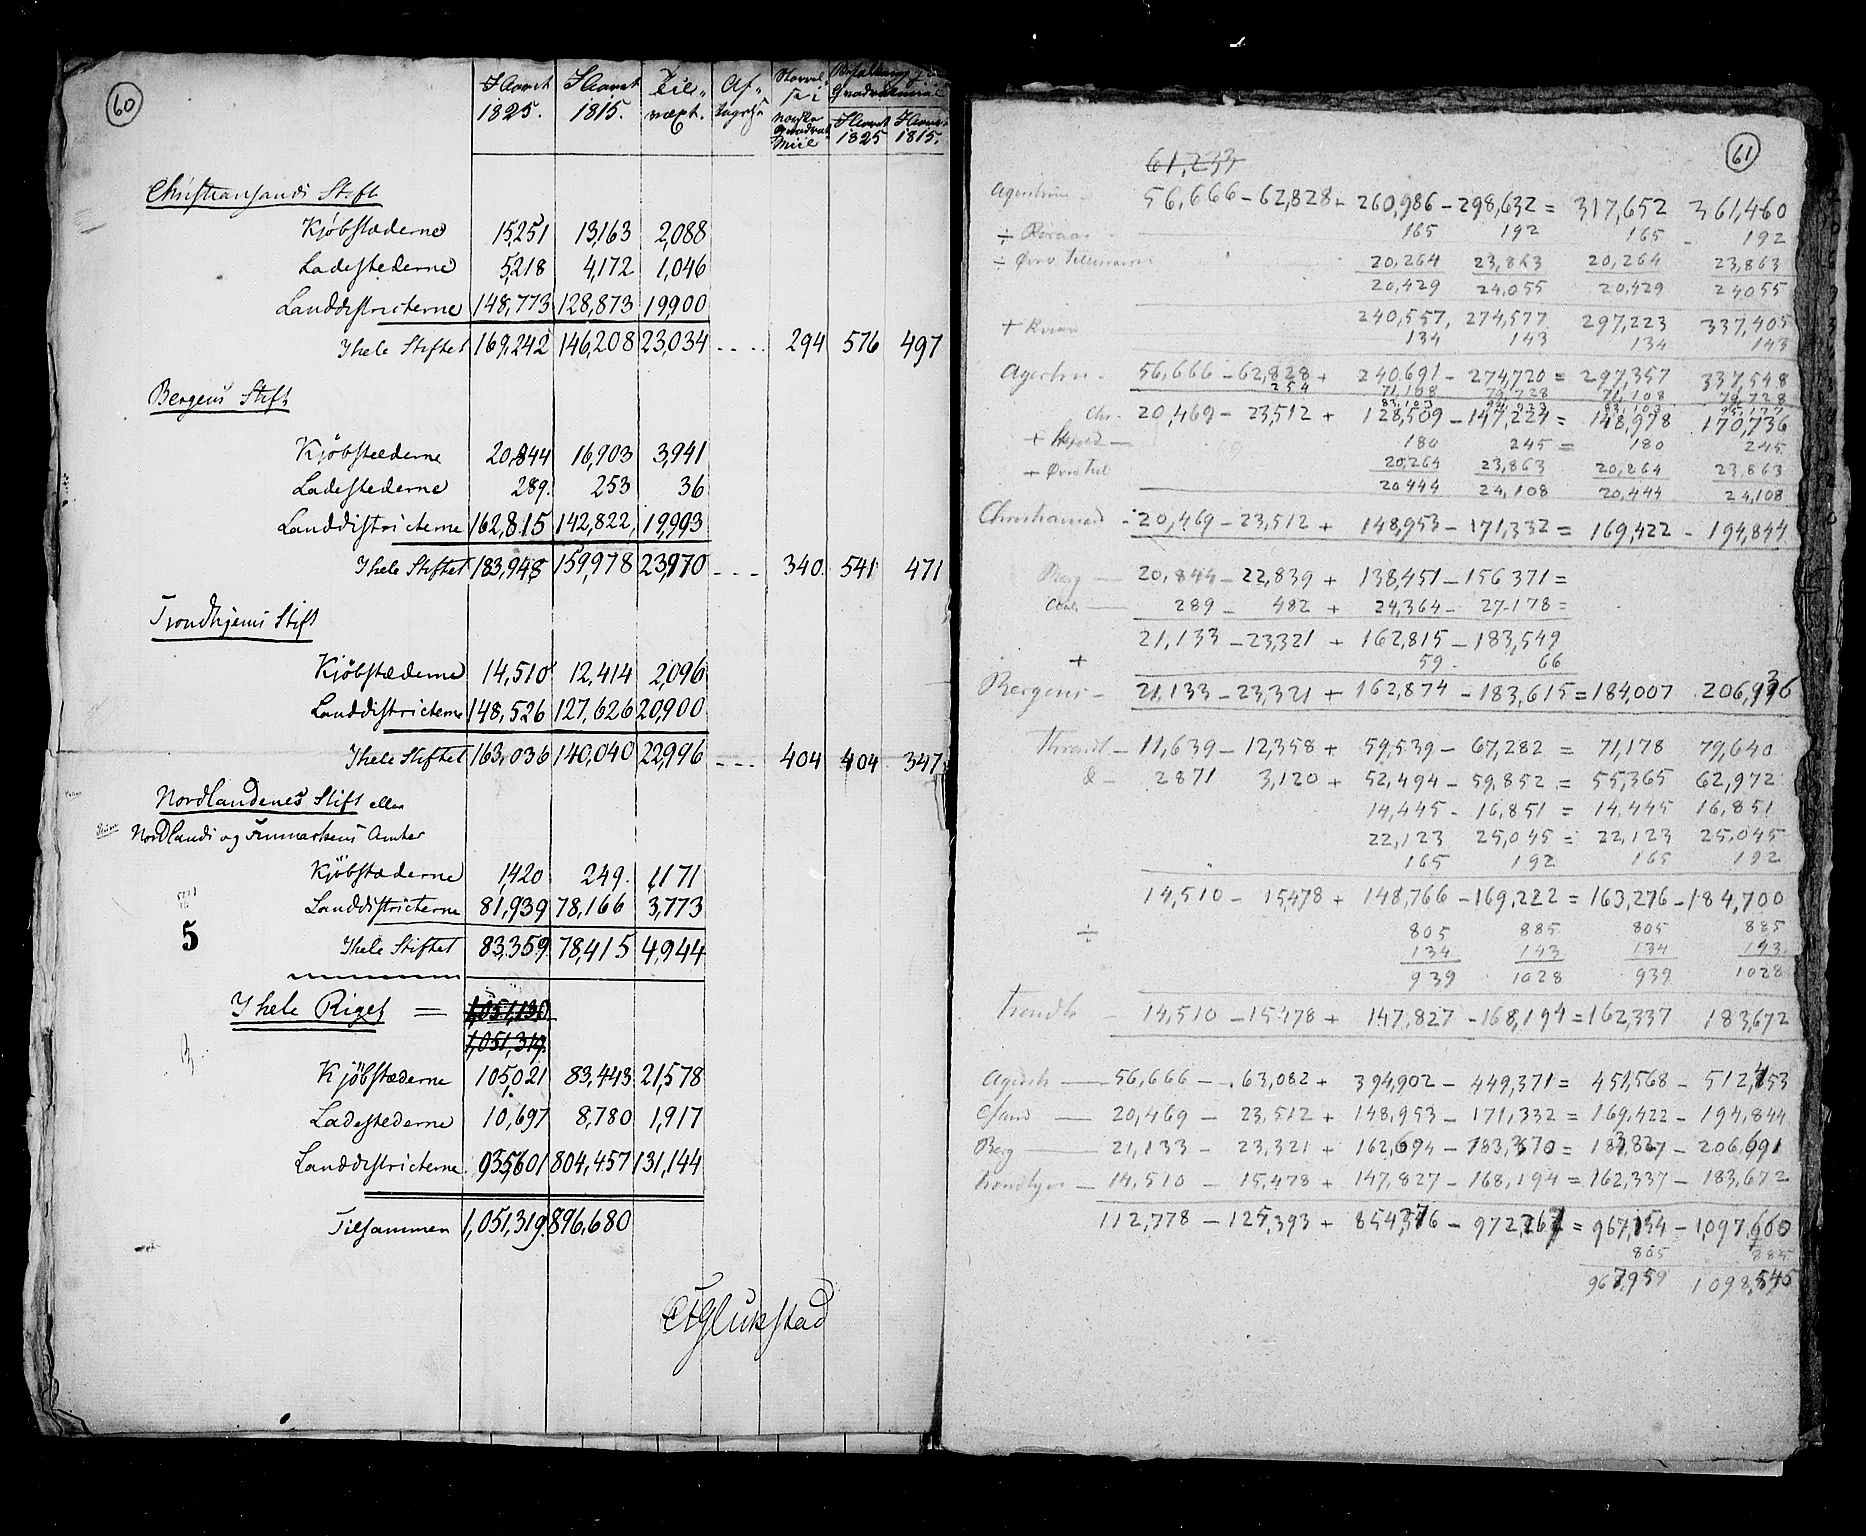 60
I Aaret 1825. I Aaret 1815. Til- væxt. Af- tagelse Størrel- se i norske Quadrat Miil Befolkning Quadratmiil I Aaret 1825 I Aaret 1815.
Christiansands Stift
Kjøbstæderne 15,251 13,163 2,088
Ladestederne 5,218 4,172 1,046
Landdistricterne 148,773 128,873 19,900
I hele Stiftet 169,242 146,208 23,034 294 576 497
Bergens Stift
Kjøbstæderne 20,844 16,903 3,941
Ladestederne 289. 253 36
Landdistricterne 162,815 142,822 19,993
I hele Stiftet 183,948 159,978 23,970 340. 541 471
Trondhjems Stift
Kjøbstæderne 14,510 12,414 2,096
Landdistricterne 148,526 127,626 20,900
I hele Stiftet 163,036 140,040 22,996 404 404 347
Nordlandenes Stift eller
Nordlands og Finmarkens Amter
Kjöbstæderne 1,420 249. 1,171
Landdistricterne 81,939 78,166 3,773
5
I hele Stiftet 83,359 78,415 4,944
I hele Riget = 1,051,130
1,051,319.
Kjöbstæderne 105,021 83,443 21,578
Ladestederne 10,697 8,780 1,917
Landdistricterne 935,601 804,457 131,144
Tilsammen 1,051,319. 896,680
61
61,233
56,666 - 62,828 + 260,986 - 298,632 = 317,652 361,460
÷ 165 192 165 - 192
÷ 20,264 23,863 20,264 23,863
20,429 24,055 20,429 24055
240,557, 274,577 297,223 337,405
+ 134 143 134 143
56,666 - 62,828 + 240,691 - 274,720 = 297,357 337,548
254 71,108 79,728 71,108 79,728
Chr. 20,469 - 23,512 + 128,509 - 147,224 = 148,978 170,736
+ 180 245 = 180 245
+ 20,264 23,863 20,264 23,863
20,444 24,108 20,444 24,108
20,469 - 23,512 + 148,953 - 171,332 = 169,422 - 194,844
Berg 20,844 - 22,839 + 138,451 - 156371 =
289 - 482 + 24,364 - 27,178 =
21,133 - 23,321 + 162,815 - 183,549
+ 59 . 66
Bergens - 21,133 - 23,321 + 162,874 - 183,615 = 184,007 206,936
11,639 - 12,358 + 59,539 - 67,282 = 71,178 79,640
2871 3,120 + 52,494 - 59,852 = 55,365 62,972
14,445 - 16,851 = 14,445 16,851
22,123 25,045 = 22,123 25,045
165 192 165 192
14,510 - 15,478 + 148,766 - 169,222 = 163,276 - 184,700
÷ 805 885 805 885
134 143 134 143
939 1028 939 1028
Trondh 14,510 - 15478 + 147,827 - 168,194 = 162,337 183,672
56,666 - 63,082 + 394,902 - 449,371 = 451,568 - 512,453
20,469 - 23,512 + 148,953 - 171,332 = 169,422 - 194,844
Berg 21,133 - 23,321 + 162,694 - 183,370 = 183,827 - 206,691
14,510 - 15,478 + 147,827 - 168,194 = 162,337 - 183,672
112,778 - 125,393 + 854,376 - 972,267 = 967,154 - 1,097,660
805 885
967,959 1098,545